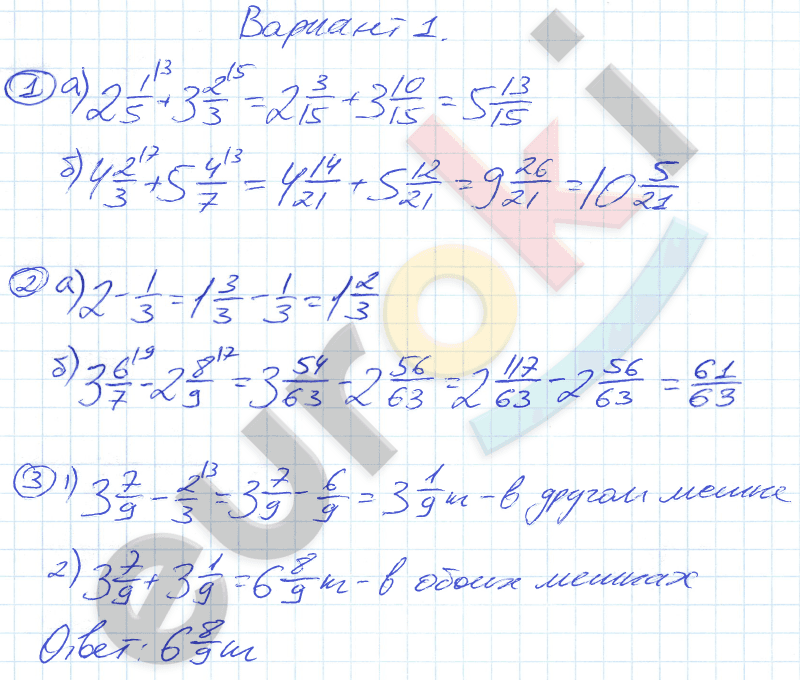 Вариант 1.
① а) 2 1/5 |3 + 3 2/3 |5 = 2 3/15 + 3 10/15 = 5 13/15
б) 4 2/3 |7 + 5 4/7 |3 = 4 14/21 + 5 12/21 = 9 26/21 = 10 5/21
② а) 2 - 1/3 = 1 3/3 - 1/3 = 1 2/3
б) 3 6/7 |9 - 2 8/9 |7 = 3 54/63 - 2 56/63 = 2 117/63 - 2 56/63 = 61/63
③ 1) 3 7/9 - 2/3 |3 = 3 7/9 - 6/9 = 3 1/9 кг - в другом мешке
2) 3 7/9 + 3 1/9 = 6 8/9 кг - в обоих мешках
Ответ: 6 8/9 кг
euroki